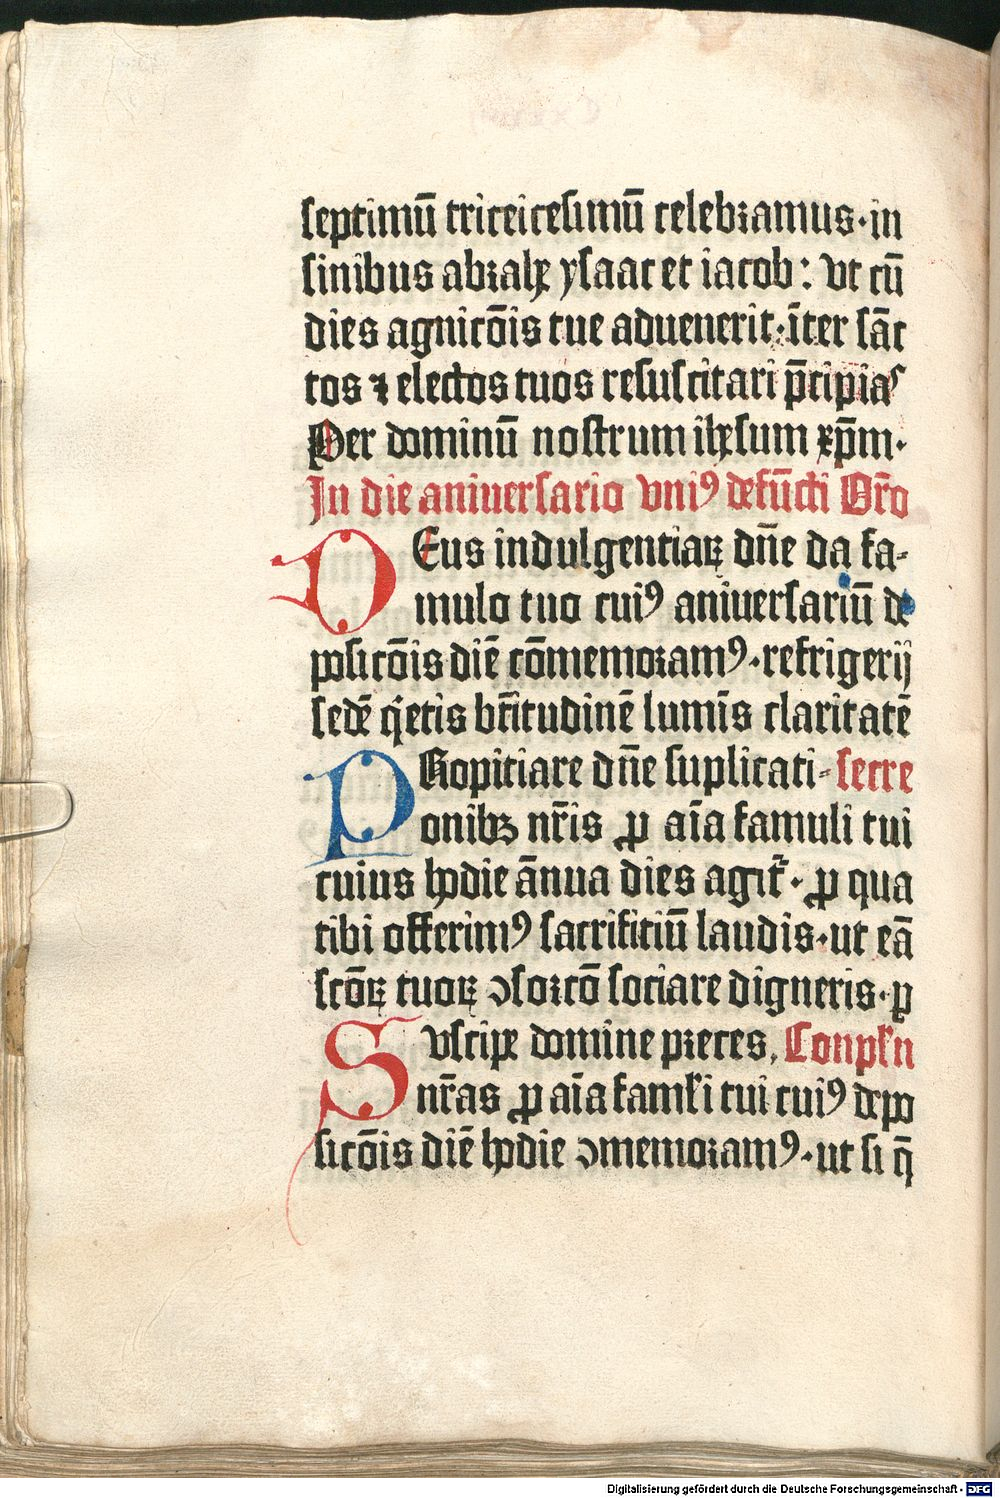 septimū triceicesimū celebramus · in
sinibus abrahe ysaac et iacob : vt cū
dies agnicōis tue aduenerit · īter sāc
tos ⁊ electos tuos resuscitari p̄cipias
Per dominū nostrum ihesum xp̄m ·
In die aniuersario vniꝰ defūcti Or̄o
DEus indulgentiaꝝ dn̄e da fa-
mulo tuo cuiꝰ aniuersariū de
posicōis diē cōmemoramꝰ · refrigerij
sedē q̇etis bt̄itudinē lumīs claritatē
PRopitiare dn̄e suplicati- secre
onibꝫ nr̄is ꝓ aīa famuli tui
cuius hodie ānua dies agit᷑ · ꝓ qua
tibi offerimꝰ sacrifitiū laudis · ut eā
scōꝝ tuoꝝ ꝯsorcō sociare digneris · p
SVscipe domine preces, Conpl̄n
nr̄as ꝓ aīa faml̄i tui cuiꝰ depo
sicōis diē hodie ꝯmemoramꝰ · ut si q̄
Digitalisierung gefördert durch die Deutsche Forschungsgemeinschaft - DFG